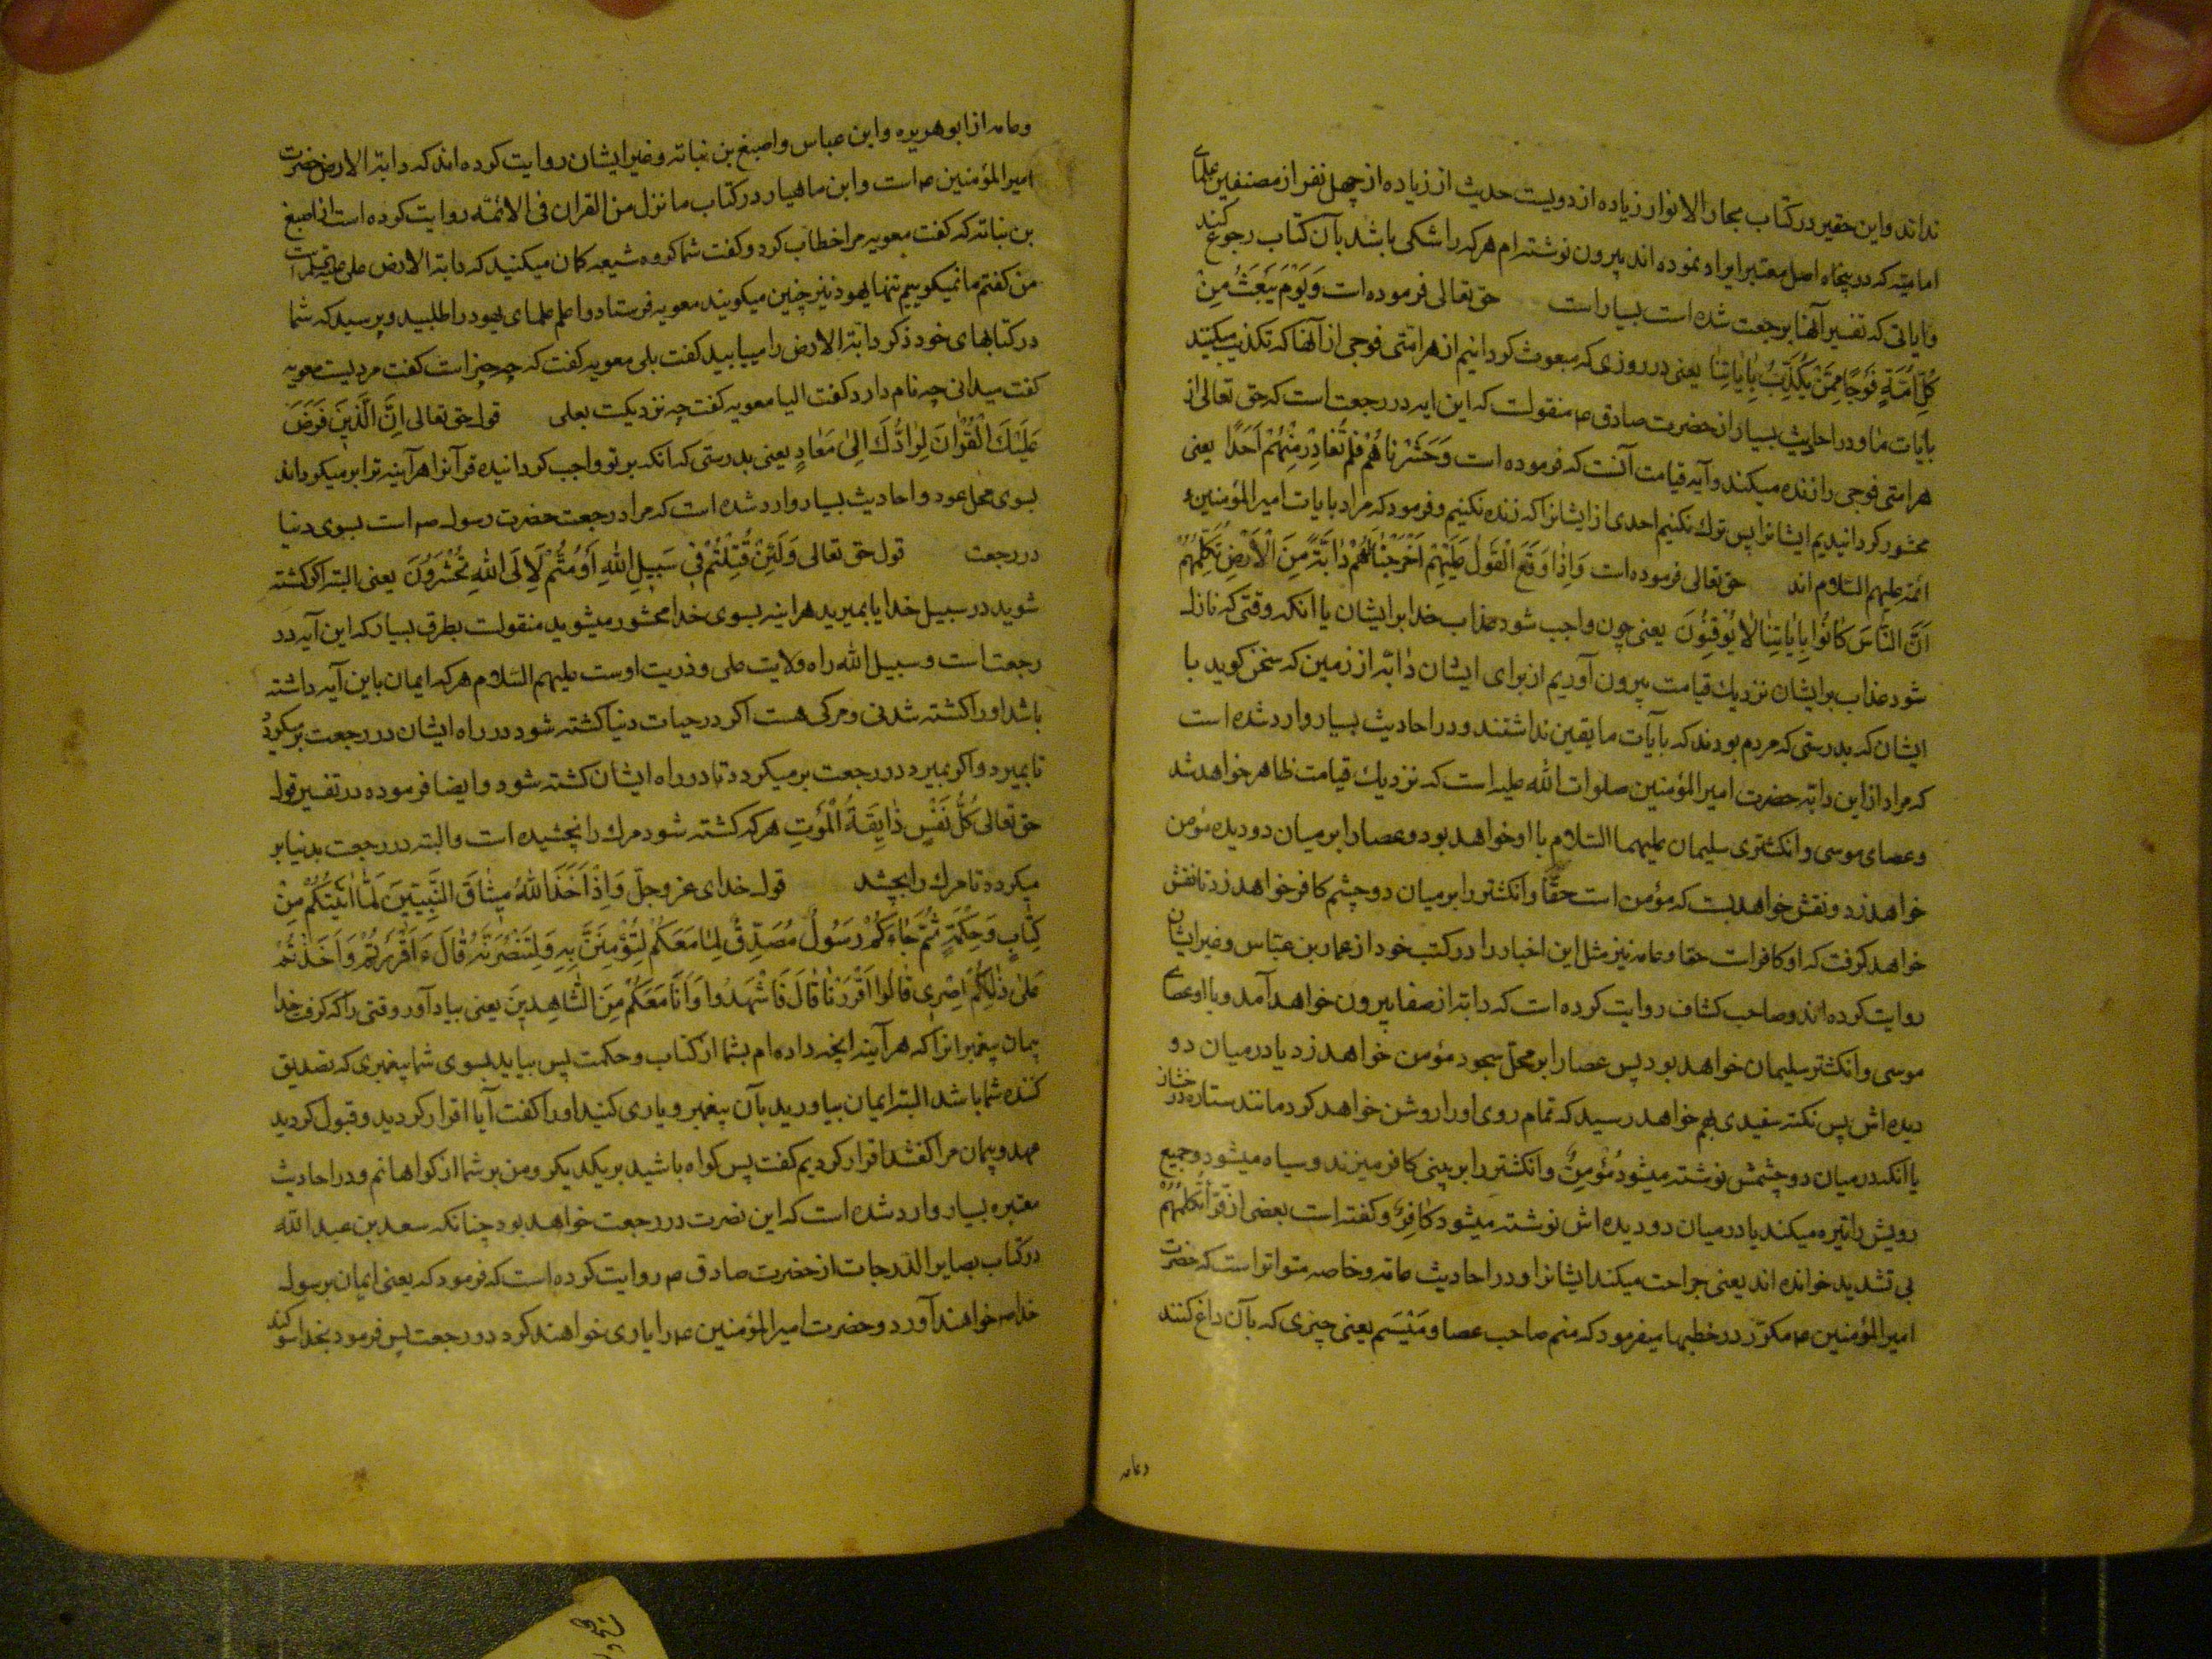 نداند و این حقیر در کتاب بحار الانوار زیاده از دویست حدیث از زیاده از چهل نفر از مصنفین علمای
امامیّه که در پنجاه اصل معتبر ایراد نموده اند بیرون نوشته ام هر که را شکی باشد بآن کتاب رجوع کند
و ایاتی که تفسیر آنها برجعت شده است بسیار است حق تعالی فرموده است وَیَوْمَ نَبْعَثُ مِنْ
کُلِّ اُمَّةٍ فَوْجًا مِمَّنْ یُکَذِّبُ بِاٰیٰاتِنٰا یعنی در روزی که مبعوث کردانیم از هر امّتی فوجی از آنها که تکذیب میکنند
بآیات ما و در احادیث بسیار از حضرت صادق ع منقولست که این ایه در رجعت است که حق تعالی از
هر امتی فوجی را زنده میکند و آیه قیامت آنست که فرموده است وَحَشَرْنٰاهُمْ فَلَمْ نُغٰادِرْ مِنْهُمْ اَحَدًا یعنی
محشور کردانیدیم ایشانرا پس ترك نکنیم احدی از ایشانرا که زنده نکنیم و فرمود که مراد بایات امیر المؤمنین و
ائمّه علیهم السّلام اند حق تعالی فرموده است وَاِذٰا وَقَعَ الْقَوْلُ عَلَیْهِمْ اَخْرَجْنٰا لَهُمْ دٰابَّةً مِنَ الْاَرْضِ تُکَلِّمُهُمْ
اَنَّ النّٰاسَ کٰانُوا بِاٰیٰاتِنٰا لٰا یُوقِنُونَ یعنی چون واجب شود عذاب خدا بر ایشان یا انکه وقتی که نازل
شود عذاب بر ایشان نزدیك قیامت بیرون آوریم از برای ایشان دٰابّه از زمین که سخن کوید با
ایشان که بدرستی که مردم بودند که بآیات ما یقین نداشتند و در احادیث بسیار وارد شده است
که مراد از این دابّه حضرت امیر المؤمنین صلوات اللّه علیه است که نزدیك قیامت ظاهر خواهد شد
و عصای موسی و انکشتری سلیمان علیهما السّلام با او خواهد بود و عصا را بر میان دو دیده مؤمن
خواهد زد و نقش خواهد بست که مؤمن است حقّا و انکشتر را بر میان دو چشم کافر خواهد زد تا نقش
خواهد کرفت که او کافر است حقا و عامه نیز مثل این اخبار را در کتب خود از عمار بن عبّاس و غیر ایشان
روایت کرده اند و صاحب کشاف روایت کرده است که دابّه از صفا بیرون خواهد آمد و با او عصای
موسی و انکشتر سلیمان خواهد بود پس عصا را بر محلّ سجود مؤمن خواهد زد یا در میان دو
دیده اش پس نکته سفیدی بهم خواهد رسید که تمام روی او را روشن خواهد کرد مانند ستاره درخشان
یا انکه در میان دو چشمش نوشته میشود مُؤْمِنٌ و انکشتر را بر بینی کافر میزند و سیاه میشود و جمیع
رویش را تیره میکند یا در میان دو دیده اش نوشته میشود کٰافِرٌ و کفته است بعضی از قرّا تَکْلِمُهُمْ
بی تشدید خوانده اند یعنی جراحت میکند ایشانرا و در احادیث عامّه و خاصه متواتر است که حضرت
امیر المؤمنین ع مکرّر در خطبها میفرمود که منم صاحب عصا و مَیْسَم یعنی چیزی که بآن داغ کنند
و عامه
و عامه از ابو هریره و ابن عباس و اصبغ بن نباته و غیر ایشان روایت کرده اند که دابّة الارض حضرت
امیر المؤمنین ع است و ابن ماهیار در کتاب ما نزل من القران فی الائمّه روایت کرده است از اصبغ
بن نباته که کفت معویه مرا خطاب کرد و کفت شما کروه شیعه کمان میکنید که دابّة الارض علی علیه السلام است
من کفتم ما نمیکوییم تنها یهود نیز چنین میکویند معویه فرستاد و اعلم علمای یهود را طلبید و پرسید که شما
در کتابهای خود ذکر دابّة الارض را مییابید کفت بلی معویه کفت که چه چیز است کفت مردیست معویه
کفت میدانی چه نام دارد کفت الیا معویه کفت چه نزدیکست بعلی قول حق تعالی اِنَّ الَّذِینَ فَرَضَ
عَلَیْكَ الْقُرْاٰنَ لَرٰادُّكَ اِلیٰ مَعٰادٍ یعنی بدرستی که انکه بر تو واجب کردانیده قرآنرا هرآینه ترا بر میکرداند
بسوی محل عود و احادیث بسیار وارد شده است که مراد رجعت حضرت رسول ص است بسوی دنیا
در رجعت قول حق تعالی وَلَئِنْ قُتِلْتُمْ فِی سَبِیلِ اللّٰهِ اَوْ مُتُّمْ لَاِلَی اللّٰهِ تُحْشَرُونَ یعنی البته اکر کشته
شوید در سبیل خدا یا بمیرید هراینه بسوی خدا محشور میشوید منقولست بطرق بسیار که این آیه در
رجعت است و سبیل اللّه راه ولایت علی و ذریت اوست علیهم السّلام هر که ایمان باین آیه داشته
باشد او را کشته شدنی و مرکی هست اکر در حیات دنیا کشته شود در راه ایشان در رجعت بر میکردد
تا بمیرد و اکر بمیرد در رجعت بر میکردد تا در راه ایشان کشته شود و ایضا فرموده در تفسیر قول
حق تعالی کُلُّ نَفْسٍ ذٰایِقَةُ الْمَوْتِ هر که کشته شود مرك را نچشیده است و البته در رجعت بدنیا بر
میکردد تا مرك را بچشد قول خدای عز و جلّ وَاِذْ اَخَذَ اللّٰهُ مِیثٰاقَ النَّبِیِّینَ لَمٰا اٰتَیْتُکُمْ مِنْ
کِتٰابٍ وَحِکْمَةٍ ثُمَّ جٰاءَکُمْ رَسُولٌ مُصَدِّقٌ لِمٰا مَعَکُمْ لَتُؤْمِنُنَّ بِهِ وَلَتَنْصُرُنَّهُ قٰالَ ءَاَقْرَرْتُمْ وَاَخَذْتُمْ
عَلیٰ ذٰلِکُمْ اِصْرِی قٰالُوا اَقْرَرْنٰا قٰالَ فَاشْهَدُوا وَاَنَا مَعَکُمْ مِنَ الشّٰاهِدِینَ یعنی بیاد آور وقتی را که کرفت خدا
پیمان پیغمبرانرا که هرآینه انچه داده ام بشما از کتاب و حکمت پس بیاید بسوی شما پیغمبری که تصدیق
کننده شما باشد البته ایمان بیاورید بآن پیغمبر و یاری کنید او را کفت آیا اقرار کردید و قبول کردید
عهد و پیمان مرا کفتند اقرار کردیم کفت پس کواه باشید بر یکدیکر و من بر شما از کواهانم و در احادیث
معتبره بسیار وارد شده است که این نصرت در رجعت خواهد بود چنانکه سعد بن عبد اللّه
در کتاب بصایر الدّرجات از حضرت صادق ع روایت کرده است که فرمود که یعنی ایمان برسول
خدا ص خواهند آورد و حضرت امیر المؤمنین ع را یاری خواهند کرد در رجعت پس فرمود بخدا سوکند